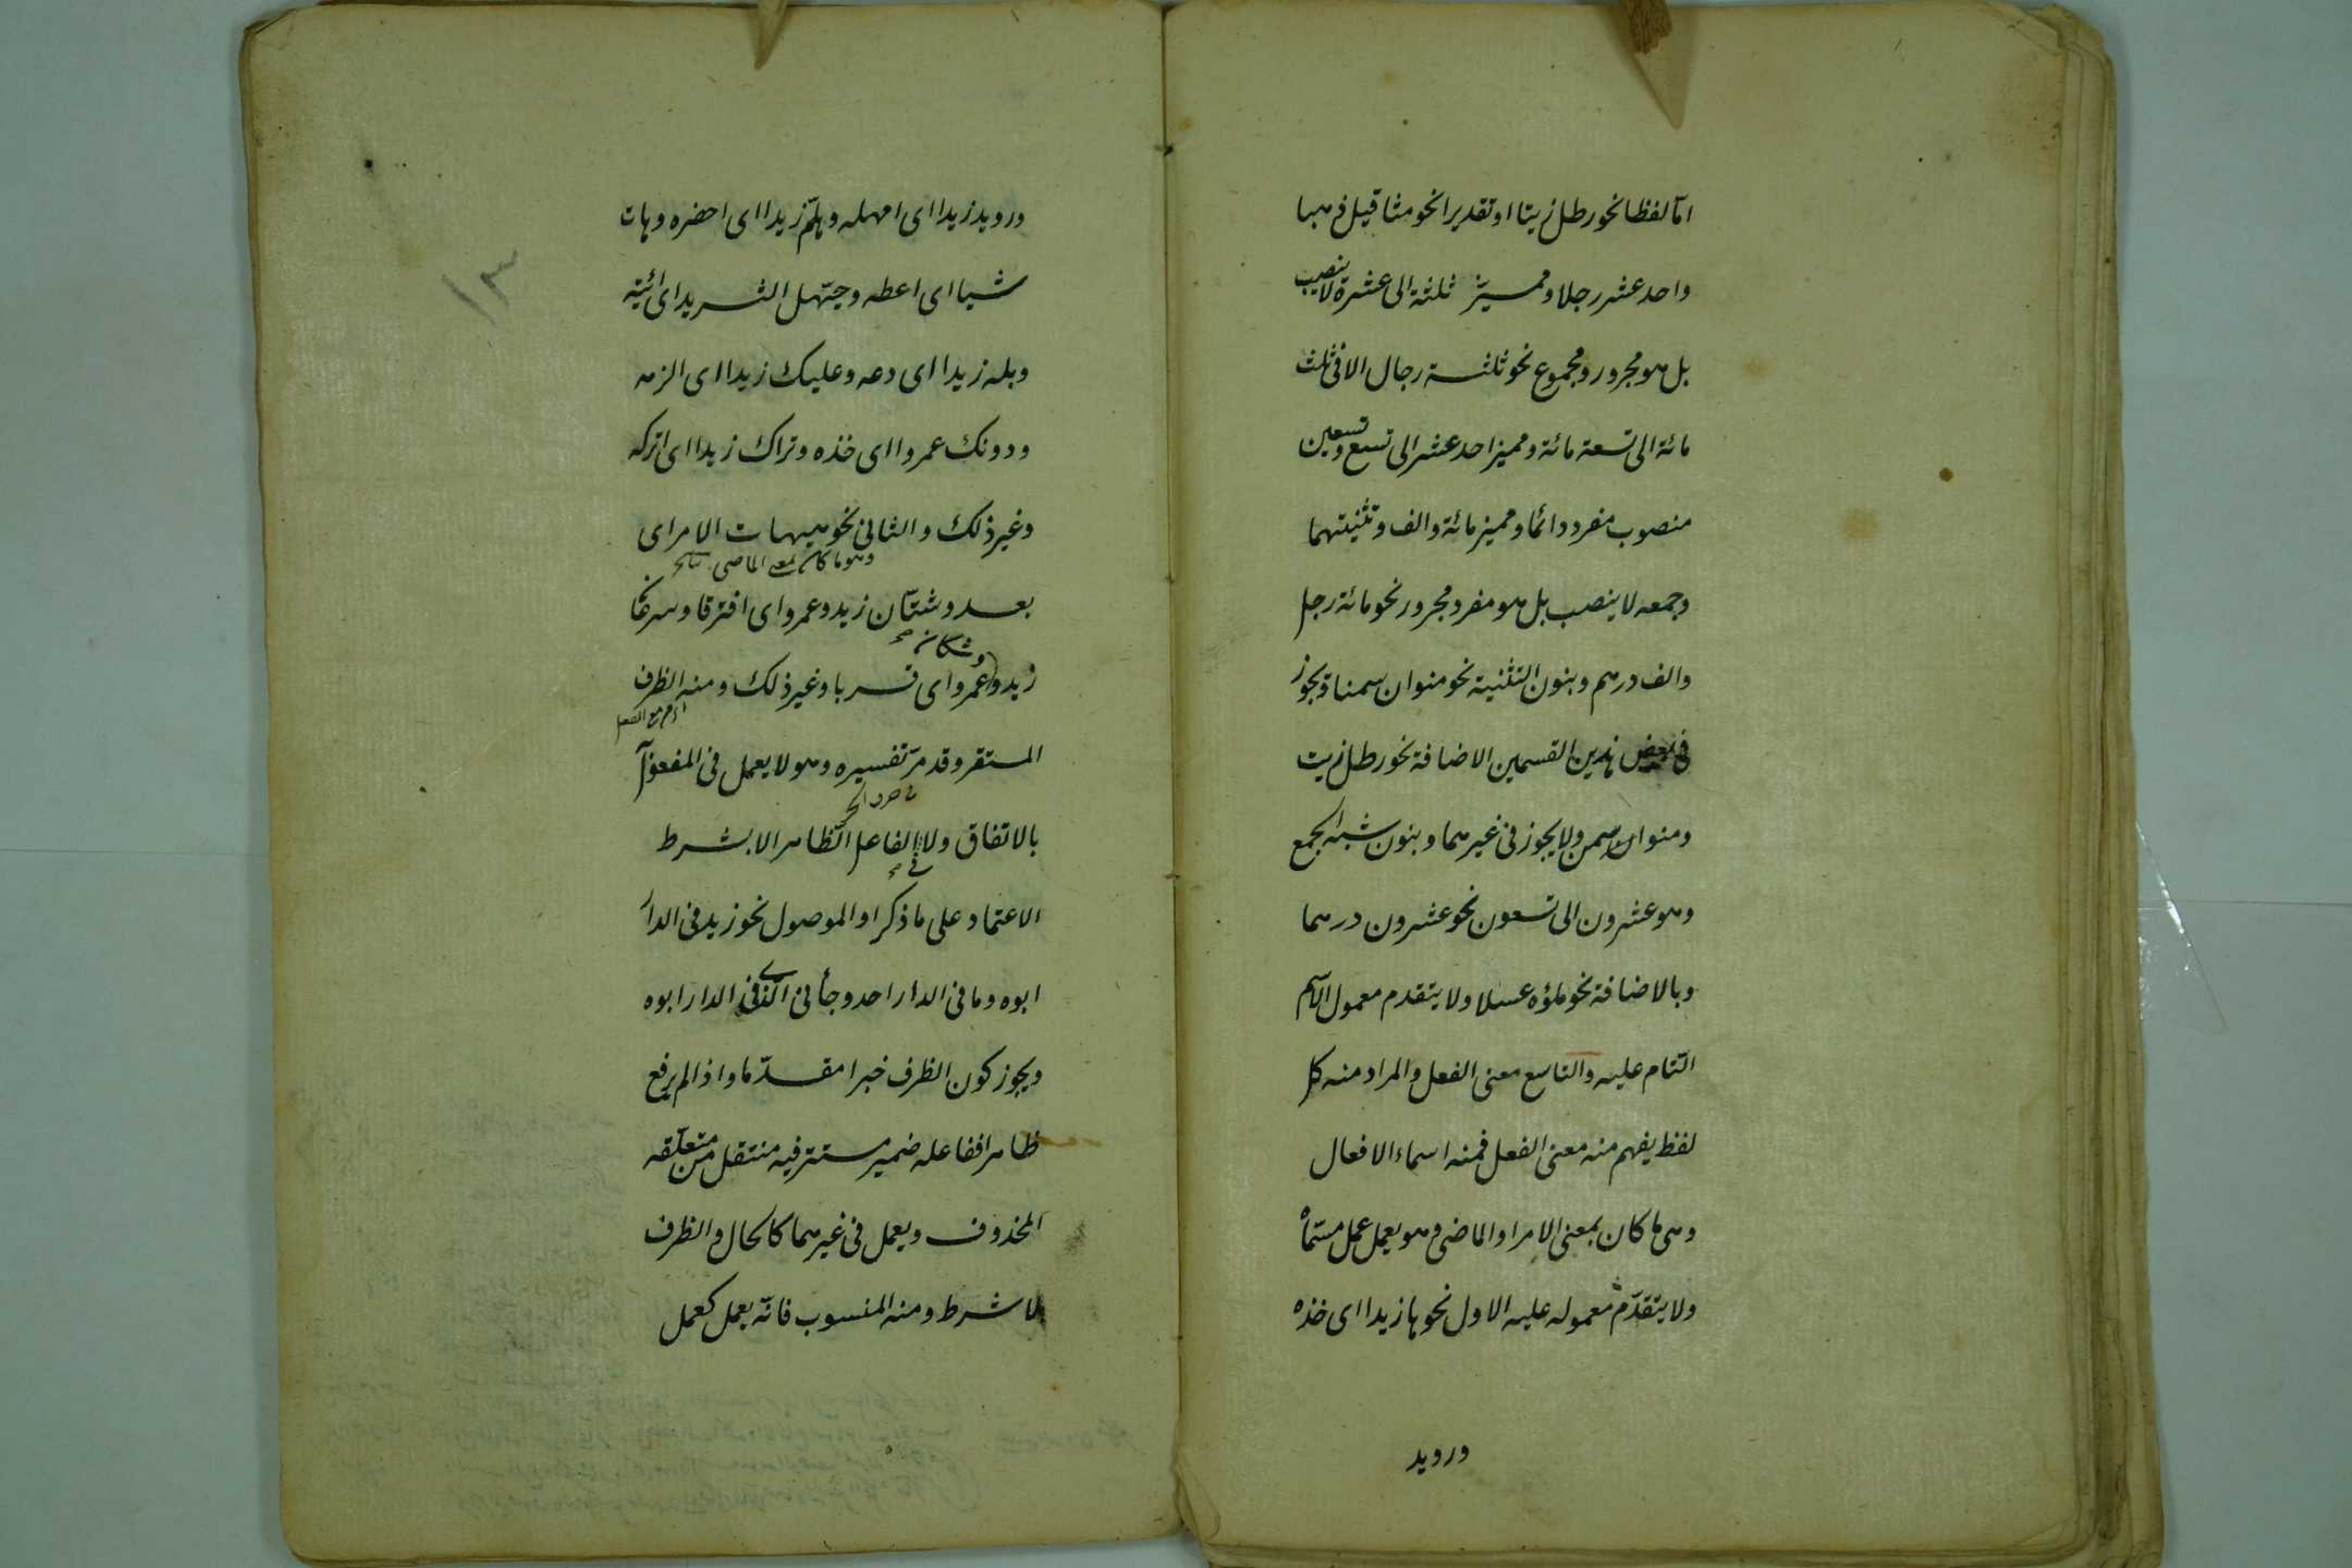 اما لفظا نحو رطل زيتا او تقديرا نحو مثاقيل ذهبا
واحد عشر رجلا ومميز ثلثة الى عشرة لا ينصب
بل هو مجرور ومجموع نحو ثلثة رجال الا في ثلث
مائة الى تسعة مائة ومميز احد عشر الى تسع وتسعين
منصوب مفرد دائما ومميز مائة والف وتثنيتهما
وجمعه لا ينصب بل هو مفرد مجرور نحو مائة رجل
والف درهم وبنون التثنية نحو منوان سمنا ويجوز
في بعض هذين القسمين الاضافة نحو رطل زيت
ومنوان سمن ولا يجوز في غيرهما وبنون شبه الجمع
وهو عشرون الى تسعون نحو عشرون درهما
وبالاضافة نحو ملؤه عسلا ولا يتقدم معمول الاسم
التام عليه والتاسع معنى الفعل والمراد منه كل
لفظ يفهم منه معنى الفعل فمنه اسماء الافعال
وهى ما كان بمعنى الامر او الماضى وهو يعمل عمل مسماه
ولا يتقدّم معموله عليه الاول نحو ها زيدا اى خذه
ورويد
ورويد زيدا اى امهله وهلمّ زيدا اى احضره وهات
شيا اى اعطه وحيّهل الثريد اى ائيته
وبله زيدا اى دعه وعليك زيدا اى الزمه
ودونك عمروا اى خذه وتراك زيدا اى اتركه
وغير ذلك والثانى نحو هيهات الامر اى
وهو ما كان بمعنى الماضى
بعد وشتّان زيد وعمرو اى افترقا وسرعان
وشكان صح
زيد وعمرو اى قربا وغير ذلك ومنه الظرف
المستقر وقد مرّ تفسيره وهو لا يعمل فى المفعول
بالاتفاق ولا الفاعل الظاهر الا بشرط
فى صح
الاعتماد على ما ذكر او الموصول نحو زيد فى الدار
ابوه وما فى الدار احد وجأنى الذى فى الدار ابوه
ويجوز كون الظرف خبرا مقدّما واذا لم يرفع
ظاهرا ففاعله ضمير مستتر فيه منتقل من متعلّقه
المحذوف ويعمل فى غيرهما كالحال والظرف
بلا شرط ومنه المنسوب فانّه يعمل كعمل
١٣